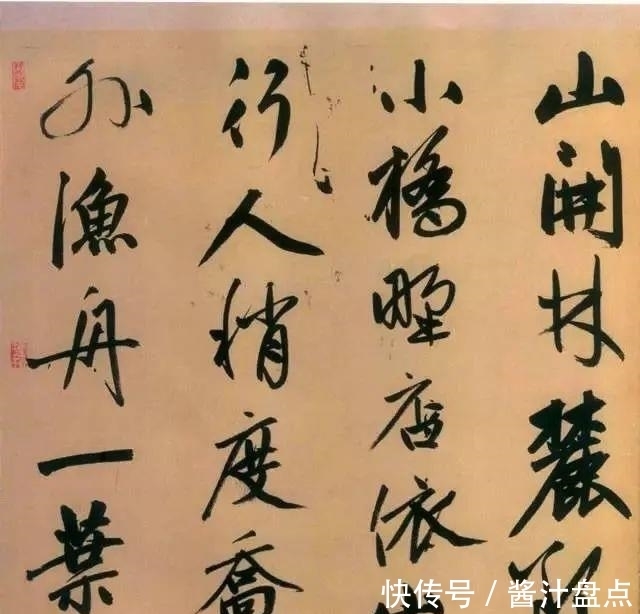 山開林麓
小橋野店依
行人稍度喬
外漁舟一葉
快传号 / 酱汁盘点